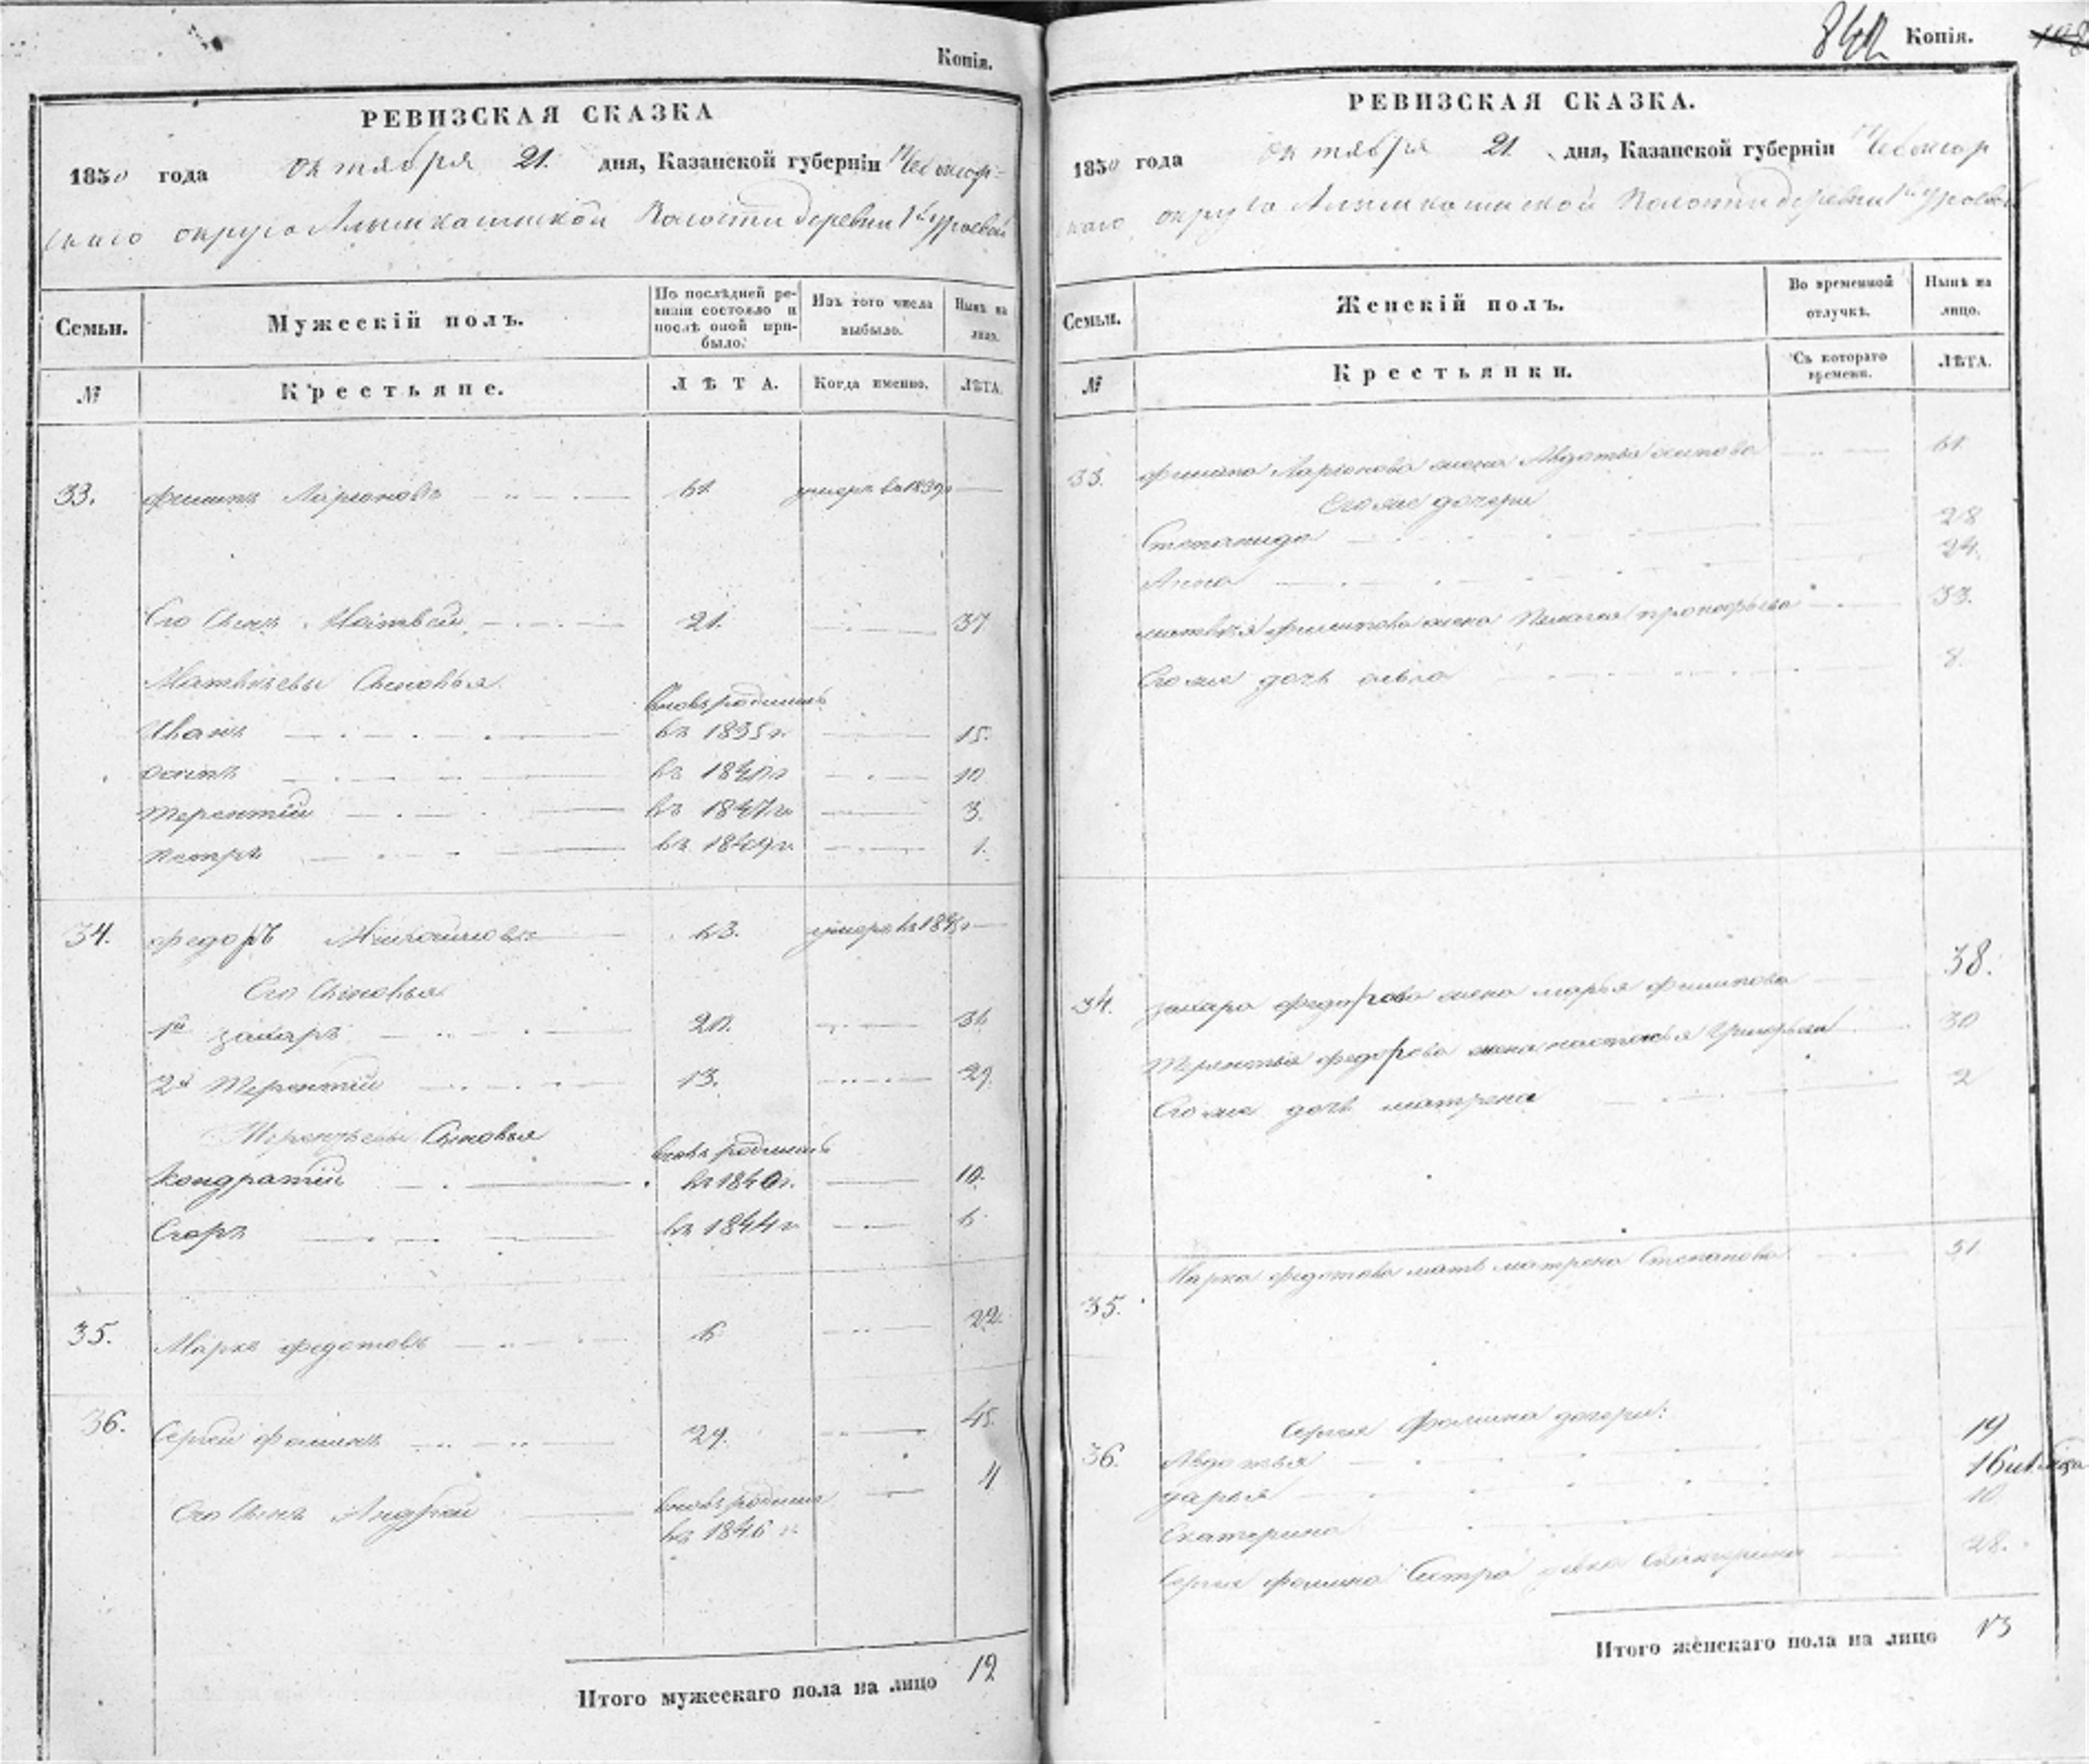 Копія.
РЕВИЗСКАЯ СКАЗКА
1850 года октября 21. дня, Казанской губерніи Чебоксар-
скаго округа Алымкасинской Волости деревни
Семьи. Мужескій полъ. По послѣдней ре-визіи состояло и послѣ оной при-было. Изъ того числа выбыло. Нынѣ на лицо.
№ Крестьяне. ЛѢТА. Когда именно. ЛѢТА.
33. Филипъ Ларіоновъ 61. умеръ въ 1839г
Его Сынъ Матвей 21. 37
Матвѣевы Сыновья вновь родились
Иванъ въ 1835г. 15.
Осипъ въ 1840г 10
Терентій въ 1847г. 3.
Петръ въ 1849г. 1.
34. Федоръ 63. умеръ въ
Его Сыновья
1й Захаръ 20. 36
2й Терентій 13. 29.
Терентьевы Сыновья вновь родились
Кондратій въ 1840г. 10.
Егоръ въ 1844г 6
35. Марко Федотовъ 6 22.
36. Сергей Фоминъ 29. 45.
Его Сынъ Андрей вновь родился 4
въ 1846 г.
Итого мужескаго пола на лицо 12
Копія.
РЕВИЗСКАЯ СКАЗКА.
1850 года октября 21 дня, Казанской губерніи Чебоксар
скаго округа Алымкасинской Волости деревни
Семьи. Женскій полъ. Во временной отлучкѣ. Нынѣ на лицо.
№ Крестьянки. Съ котораго времени. ЛѢТА.
33. Филипа Ларіонова жена Авдотья 61.
Его же дочери
Степанида 28
Анна 24.
Матвѣя Филипова жена Пелагея Прокофьева 33.
Его же дочь 8.
34. Захара Федорова жена Марья Филипова 38.
Терентья Федорова жена Настасья Григорьева 30
Его же дочь Матрена 2
Марка Федотова мать Матрена Степанова 51
35.
Сергея Фомина дочери:
36. Авдотья 19
Дарья 16
Екатерина 10.
Сергея Фомина Сестра девка Екатерина 28.
Итого женскаго пола на лицо 13